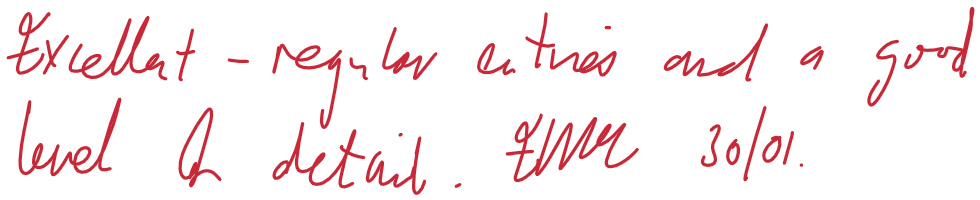 Excellent - regular entries and a good
level of detail. 30/01.